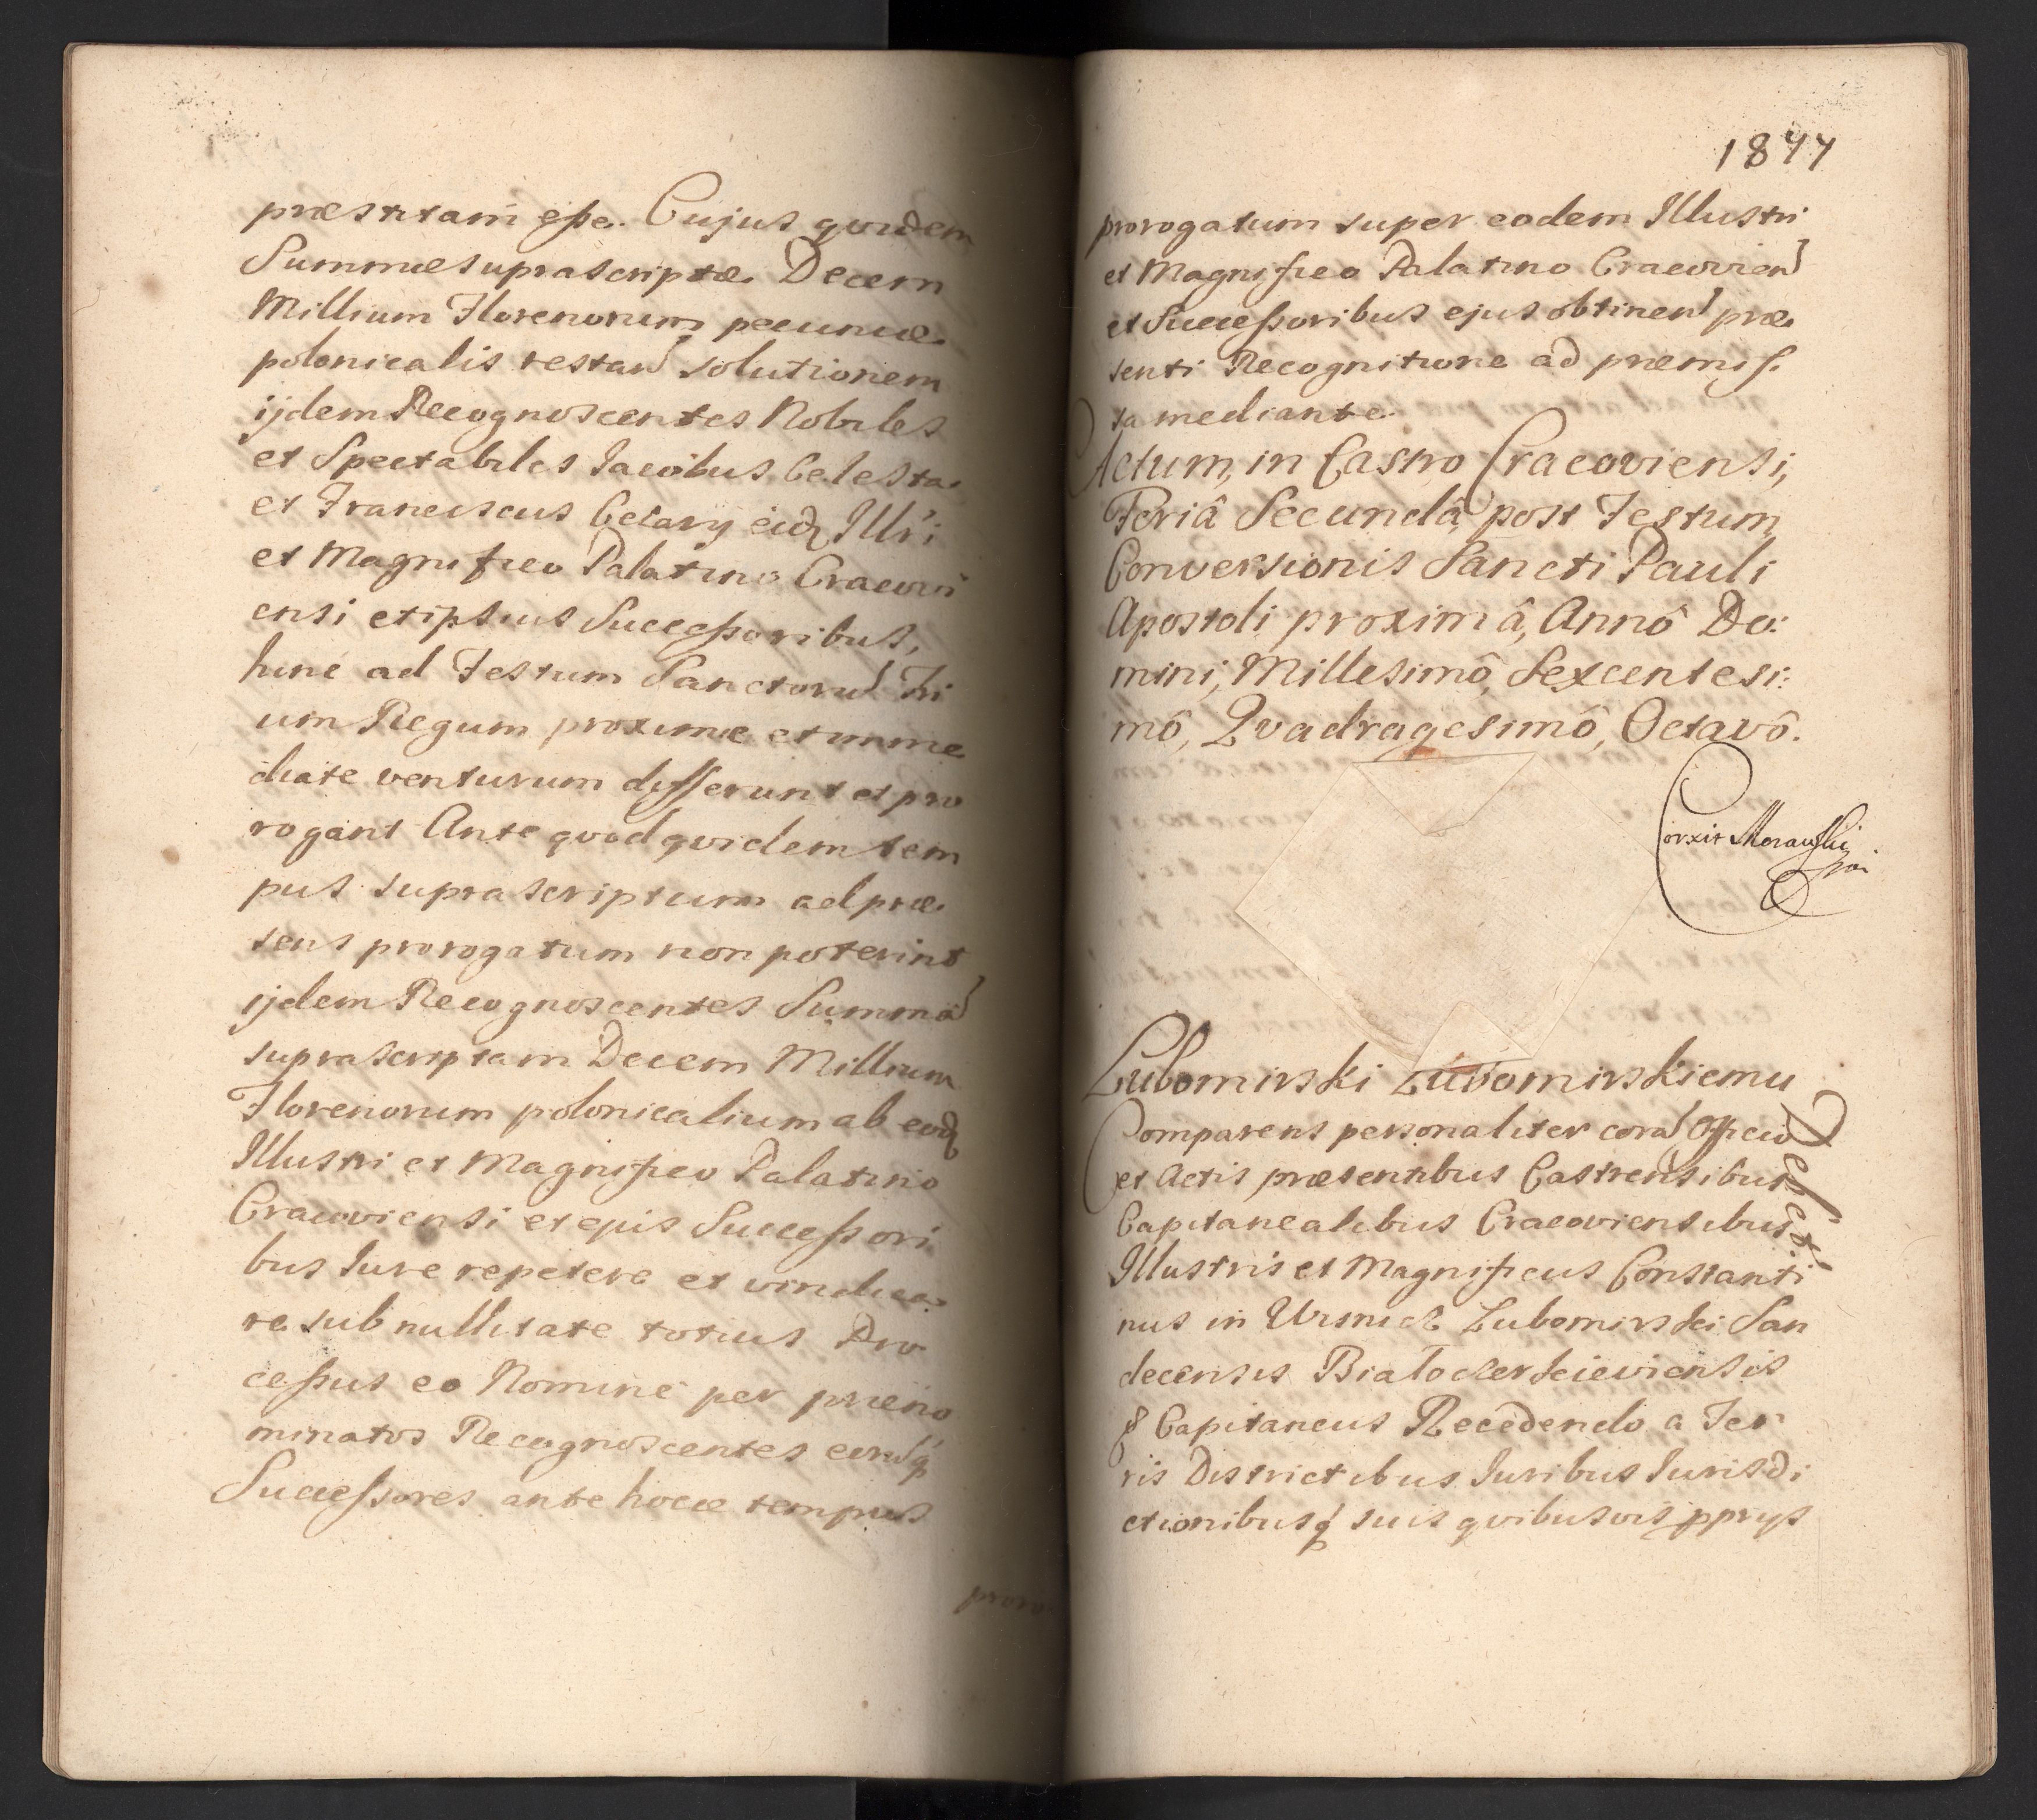 præstitam eße. Cujus quidem
Summæ supra scriptæ Decem
Millium Florenorum pecuniæ
polonicalis restan solutionem
ijdem Recognoscentes Nobiles
et Spectabiles Iacobus Celesta
et Franciscus Cetary eid Illri
et Magnifico Palatino Cracovi
ensi et ipsius Succeßoribus,
hinc ad Festum Sanctoru Tri
um Regum proxime et imme
diate venturum differunt et pro
rogant Ante quod quidem tem
pus supra scriptum ad præ
sens prorogatum non poterint
ijdem Recognoscentes Summa
suprascriptam Decem Millium
Florenorum polonicalium ab eod
Illustri et Magnifico Palatino
Cracoviensi et ejus Succeßori
bus Iure repetere et vindica
re sub nullitate totius Pro
ceßus eo Nomine per præno
minatos Recognoscentes eoruq
Succeßores ante hocce tempus
proro
1877
prorogatum super eodem Illustri
et Magnifico Palatino Cracovien
et Succeßoribus ejus obtinen præ
senti Recognitione ad præmis
sa mediante
Actum, in Castro Cracoviensi,
Feriâ Secundâ post Festum
Conversionis Sancti Pauli
Apostoli proximâ, Annô Do:
mini, Millesimô, Sexcentesi:
mô, Quadragesimô, Octavô.
Corxit Morawski
Lubomirski Lubomirskiemu
Comparens personaliter cora Officio
et Actis præsentibus Castrensibus
Capitanealibus Cracoviensibus
Illustris et Magnificus Constanti
nus in Wisnicz Lubomirski San
decensis Białocerkieviensis
& Capitaneus Recedendo a Ter
ris Districtibus Iuribus Iurisdi
ctionibusq suis quibusvis pprijs